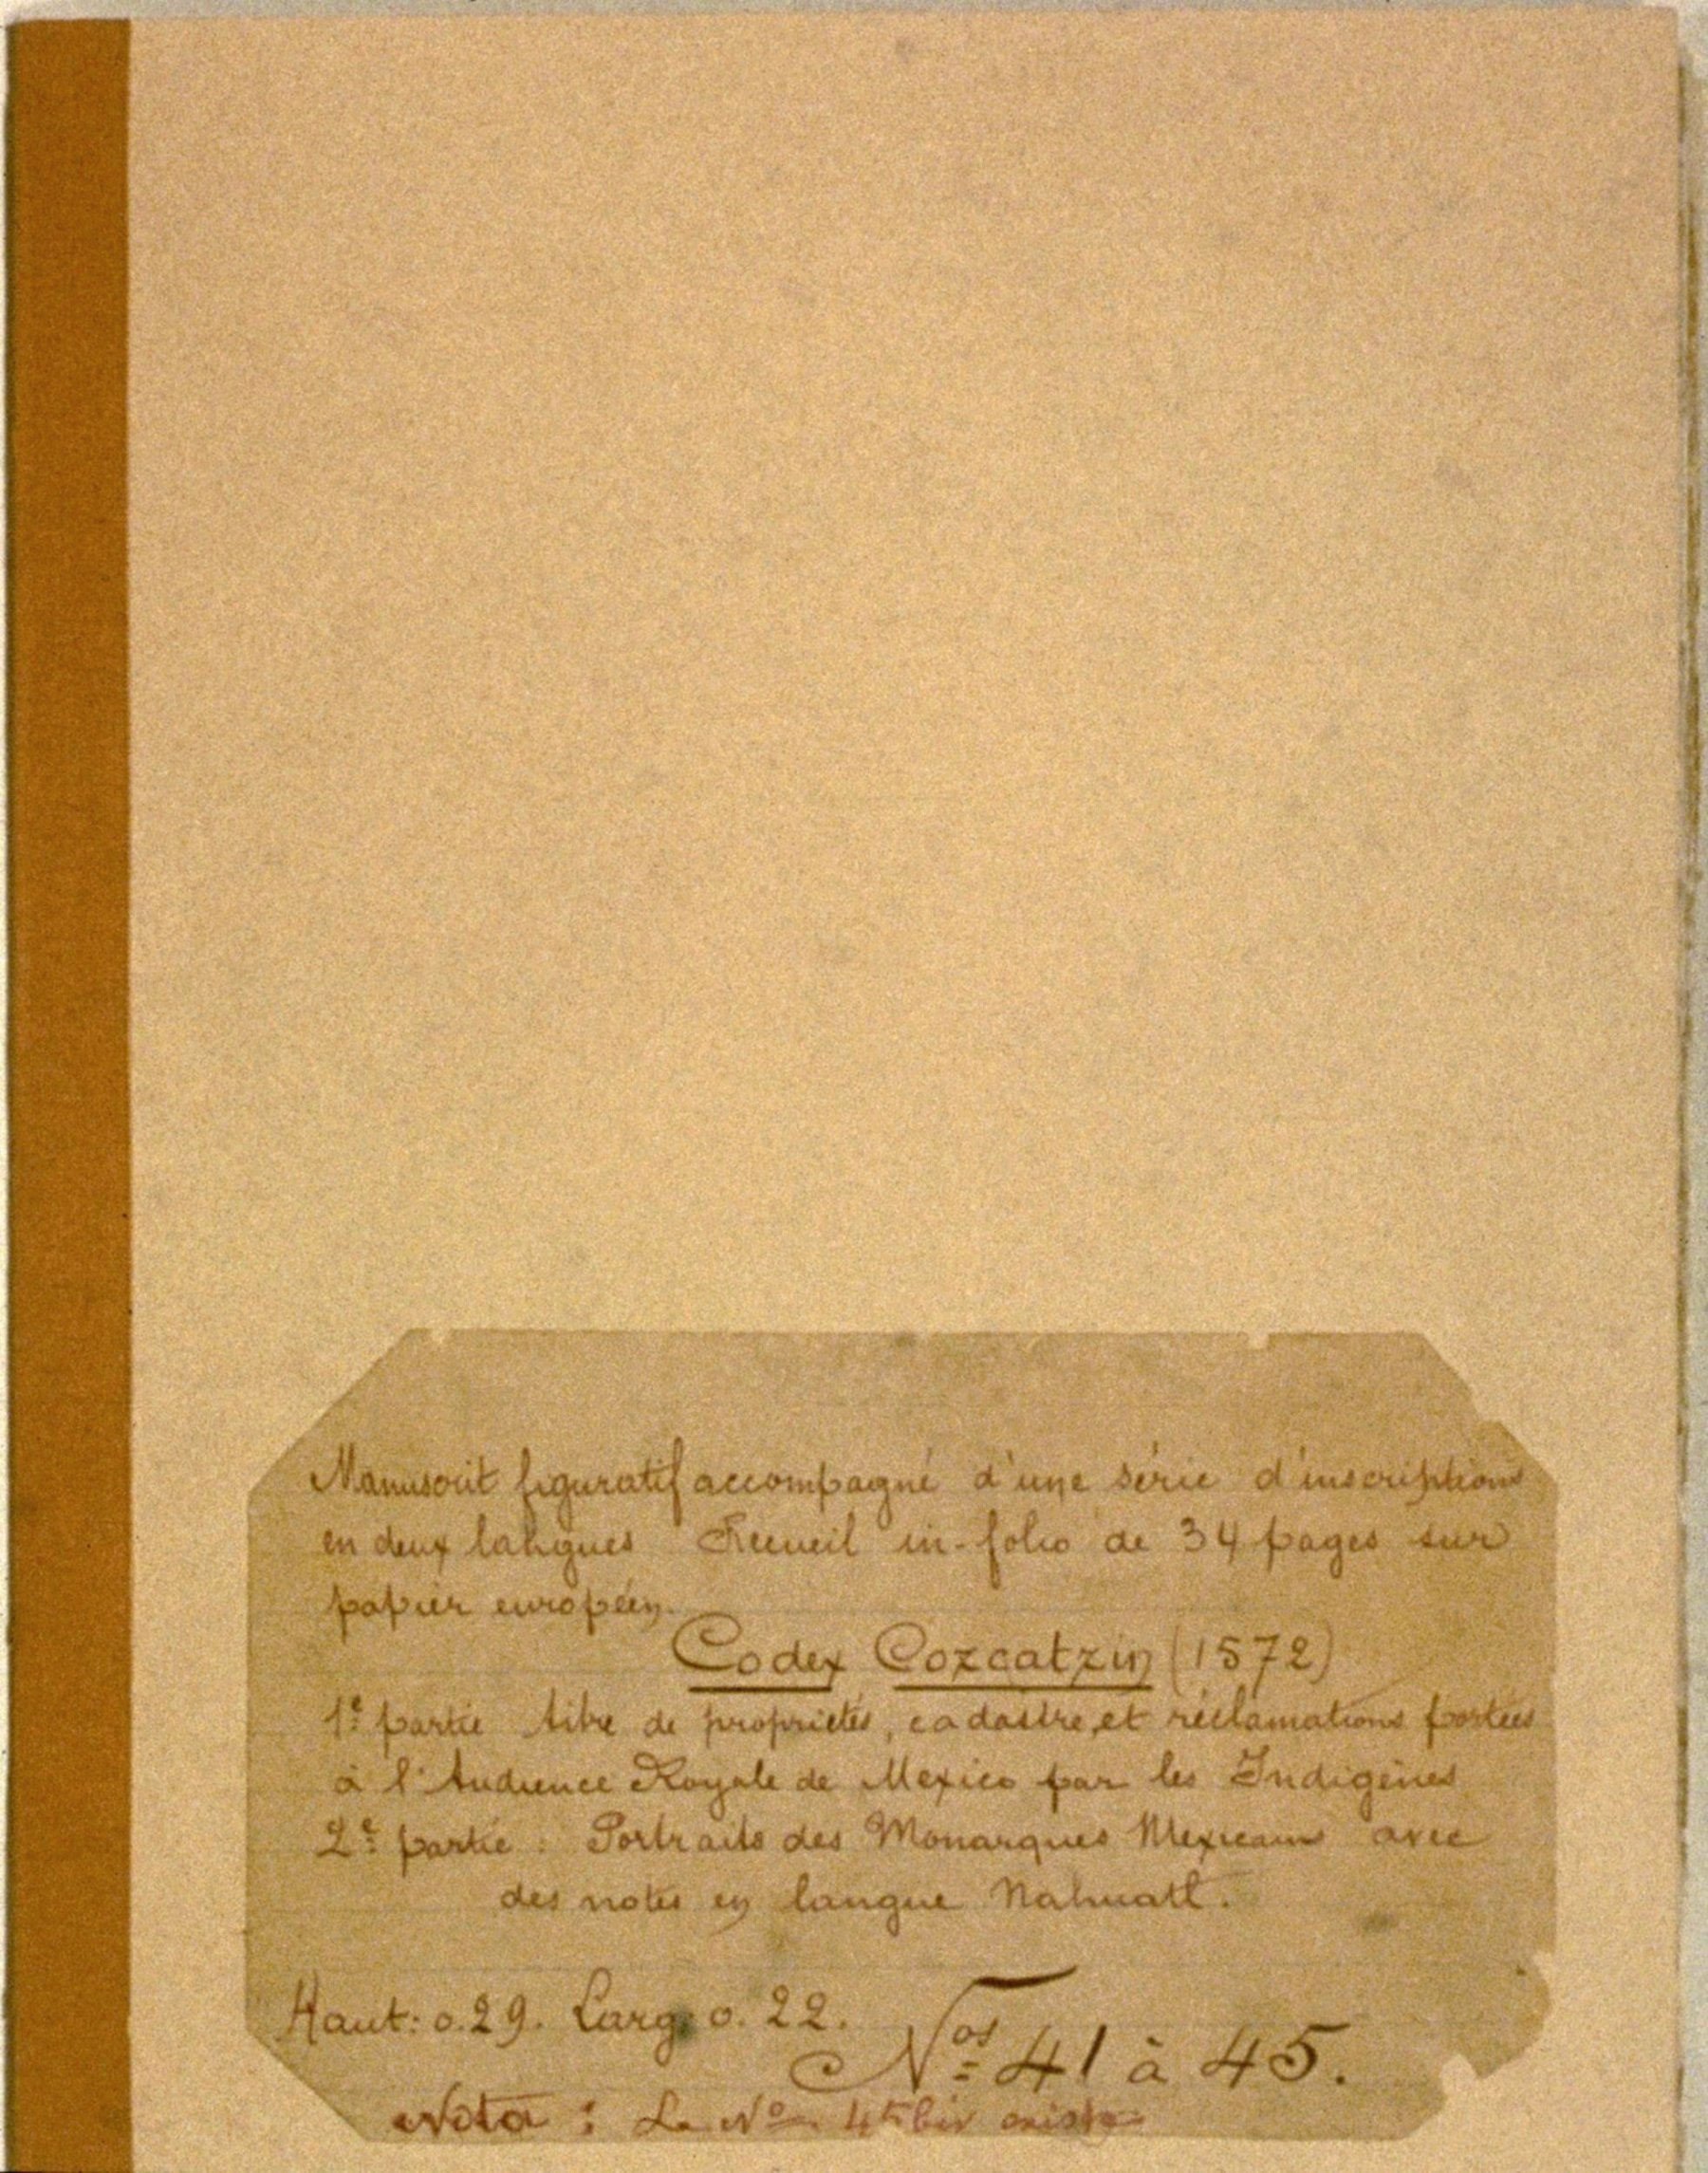 Manuscrit figuratif accompagné d'une série d'inscriptions
en deux langues Recueil in-folio de 34 pages sur
papier européen.
Codex Cozcatzin (1572)
1e partie titre de propriétés, cadastre, et réclamations portées
à l'Audience Royale de Mexico par les Indigènes
2e partie : Portraits des Monarques Mexicains avec
des notes en langue Nahuatl.
Haut: 0.29. Larg: 0.22.
Nos 41 à 45.
Nota : Le No 45 bis existe